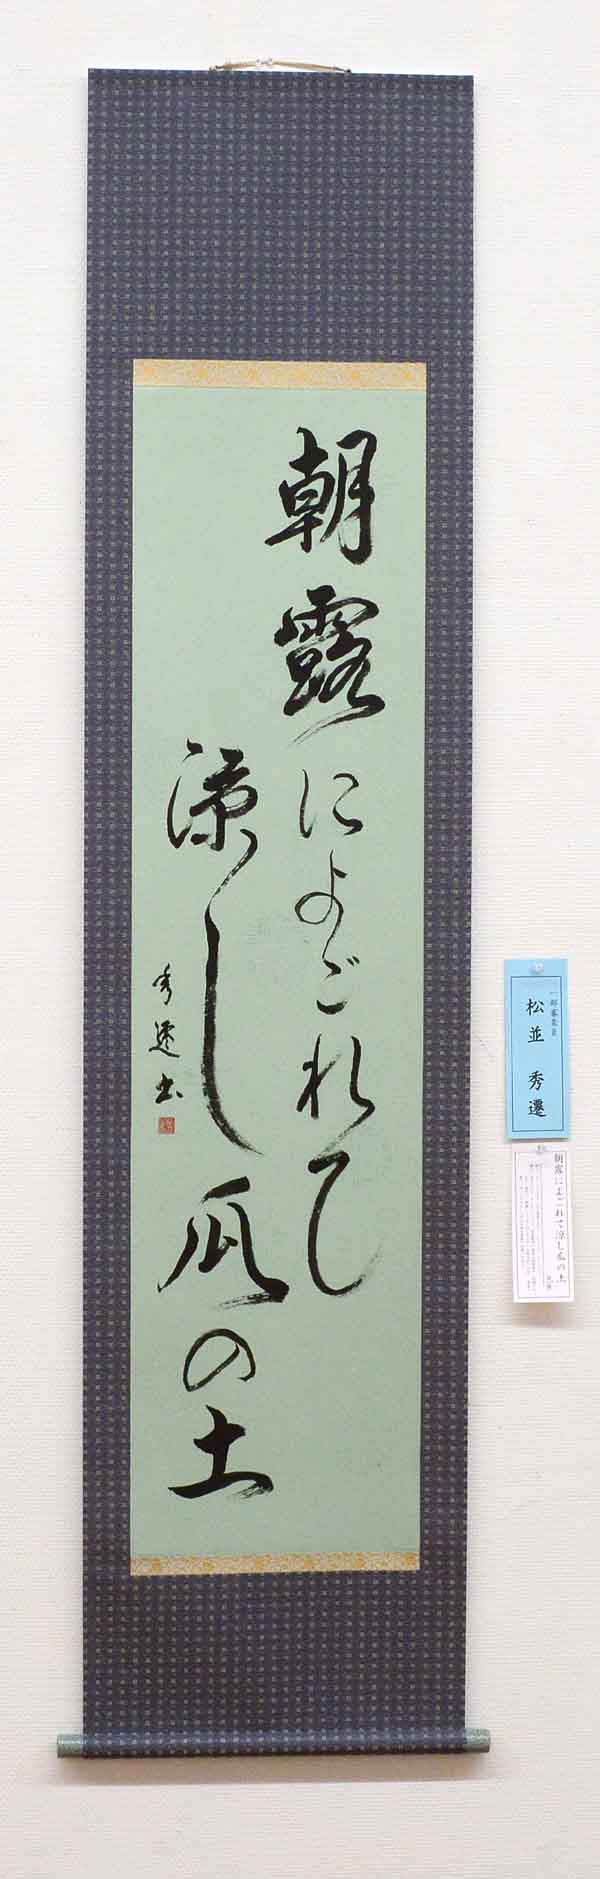 朝露によごれて
涼し瓜の土
秀遷書
一部審査員
松並 秀遷
朝露によごれて涼し瓜の土
芭蕉